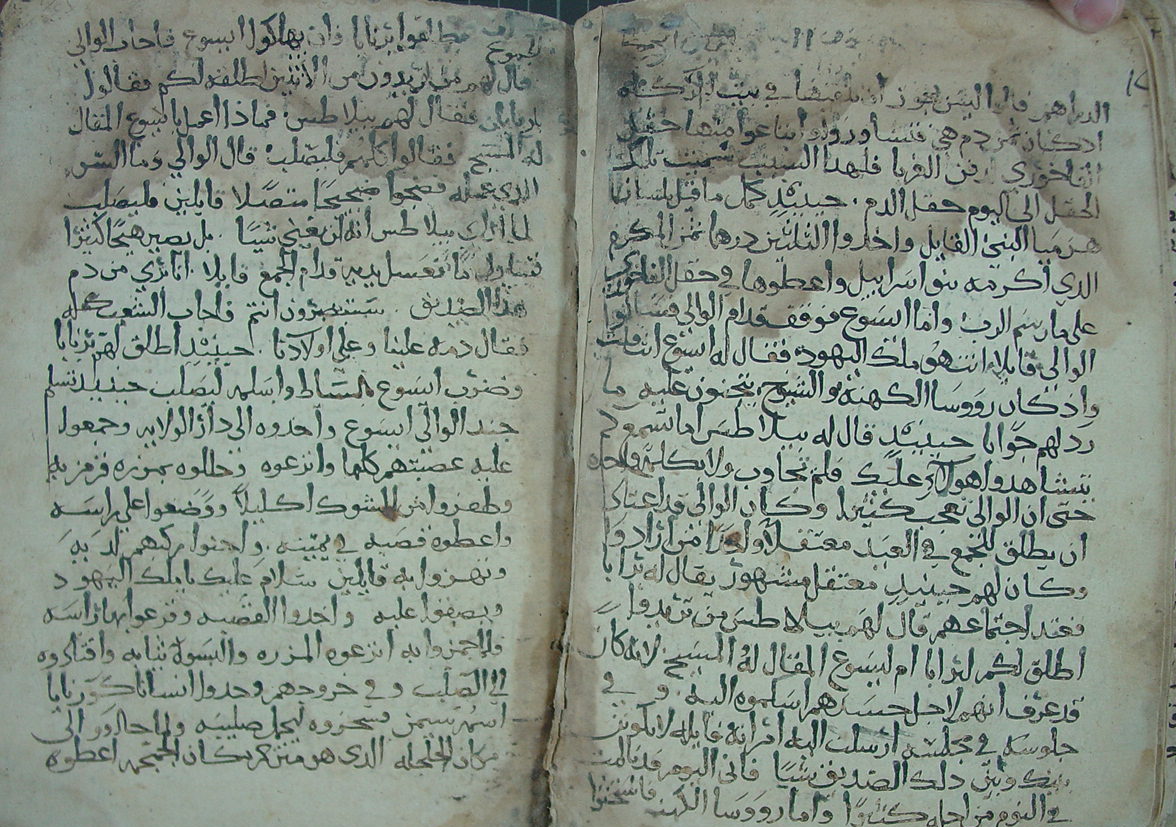 الدراهم قالوا ليس يجوز ان نلقيها في بيت
اذ كان ثمن دم هي فتشاوروا وابتاعوا منها حقل
الفاخوري لدفن الغربا فلهذا السبب سميت تلك
الحقل الى اليوم حقل الدم. حينيذ كمل ما قيل بلسان
هرميا النبي القايل واخدوا التلتين درهما ثمن المكرم
الدي اكرمه بنو اسراييل واعطوها في حقل الفاخوري
على ما رسم الرب واما ايسوع فوقف قدام الوالي فسااله
الوالي قايلا انت هو ملك اليهود فقال له ايسوع انت قلت
واذ كان رووسا الكهنة والشيوخ يتجنون عليه ما
رد لهم جوابا حينيذ قال له بيلاطس اما تسمع كم
يتشاهدوا هولاي عليك فلم يجاوب ولا بكلمة واحده
حتى ان الوالي تعجب كثيرا وكان الوالي قد اعتاد
ان يطلق للجمع في العيد معتقلا واحدا من ارادوا
وكان لهم حينيذ معتقل مشهور يقال له برابا
فعند اجتماعهم قال لهم بيلاطس من تريدوا
اطلق لكم برابا ام ايسوع المقال له المسيح لانه كان
قد عرف انهم لاجل حسدهم اسلموه اليه وفي
جلوسه في مجلسه ارسلت اليه امراته قايله لا يكون
بينك وبين دلك الصديق شيا فاني اليوم قد تالمت
في النوم من اجله كثيرا واما رووسا الكهنة
يطلقوا برنابا وان يهلكوا ايسوع فاجاب الوالي
قال لهم من تريدون من الاثنين اطلقه لكم فقالوا
برنابا فقال لهم بيلاطس فماذا اعمل بايسوع المقال
له المسيح فقالوا كلهم فليصلب قال الوالي وما الشر
الدي عمله فضجوا ضجيجا متصلا قايلين فليصلب
لما راى بيلاطس انه لن يغني شيا بل يصير هيجا كثيرا
فتناول ما فغسل يديه قدام الجمع قايلا انا بري من دم
هدا الصديق ستبصرون انتم فاجاب الشعب كله
فقال دمه علينا وعلى اولادنا حينيذ اطلق لهم برنابا
وضرب ايسوع بالسياط واسلمه ليصلب حينيذ تسلم
جند الوالي ايسوع واخدوه الى دار الولايه وجمعوا
عليه عصبتهم كلها وانزعوه وجللوه بمزره قرمزيه
وظفروا من الشوك اكليلا ووضعوا على راسه
واعطوه قصبه في يمينه واجثوا ركبهم لديه
وتهزوا به قايلين سلام عليك يا ملك اليهود
وبصقوا عليه واخدوا القصبه وقرعوا بها راسه
ولما هزوا به انزعوه المزره والبسوه ثيابه واقتادوه
الى الصلب وفي خروجهم وجدوا انسانا
اسمه سيمن فسخروه ليحمل صليبه ولما جاووا الى
مكان الجلجله الدي هو مفسر مكان الجمجمه اعطوه